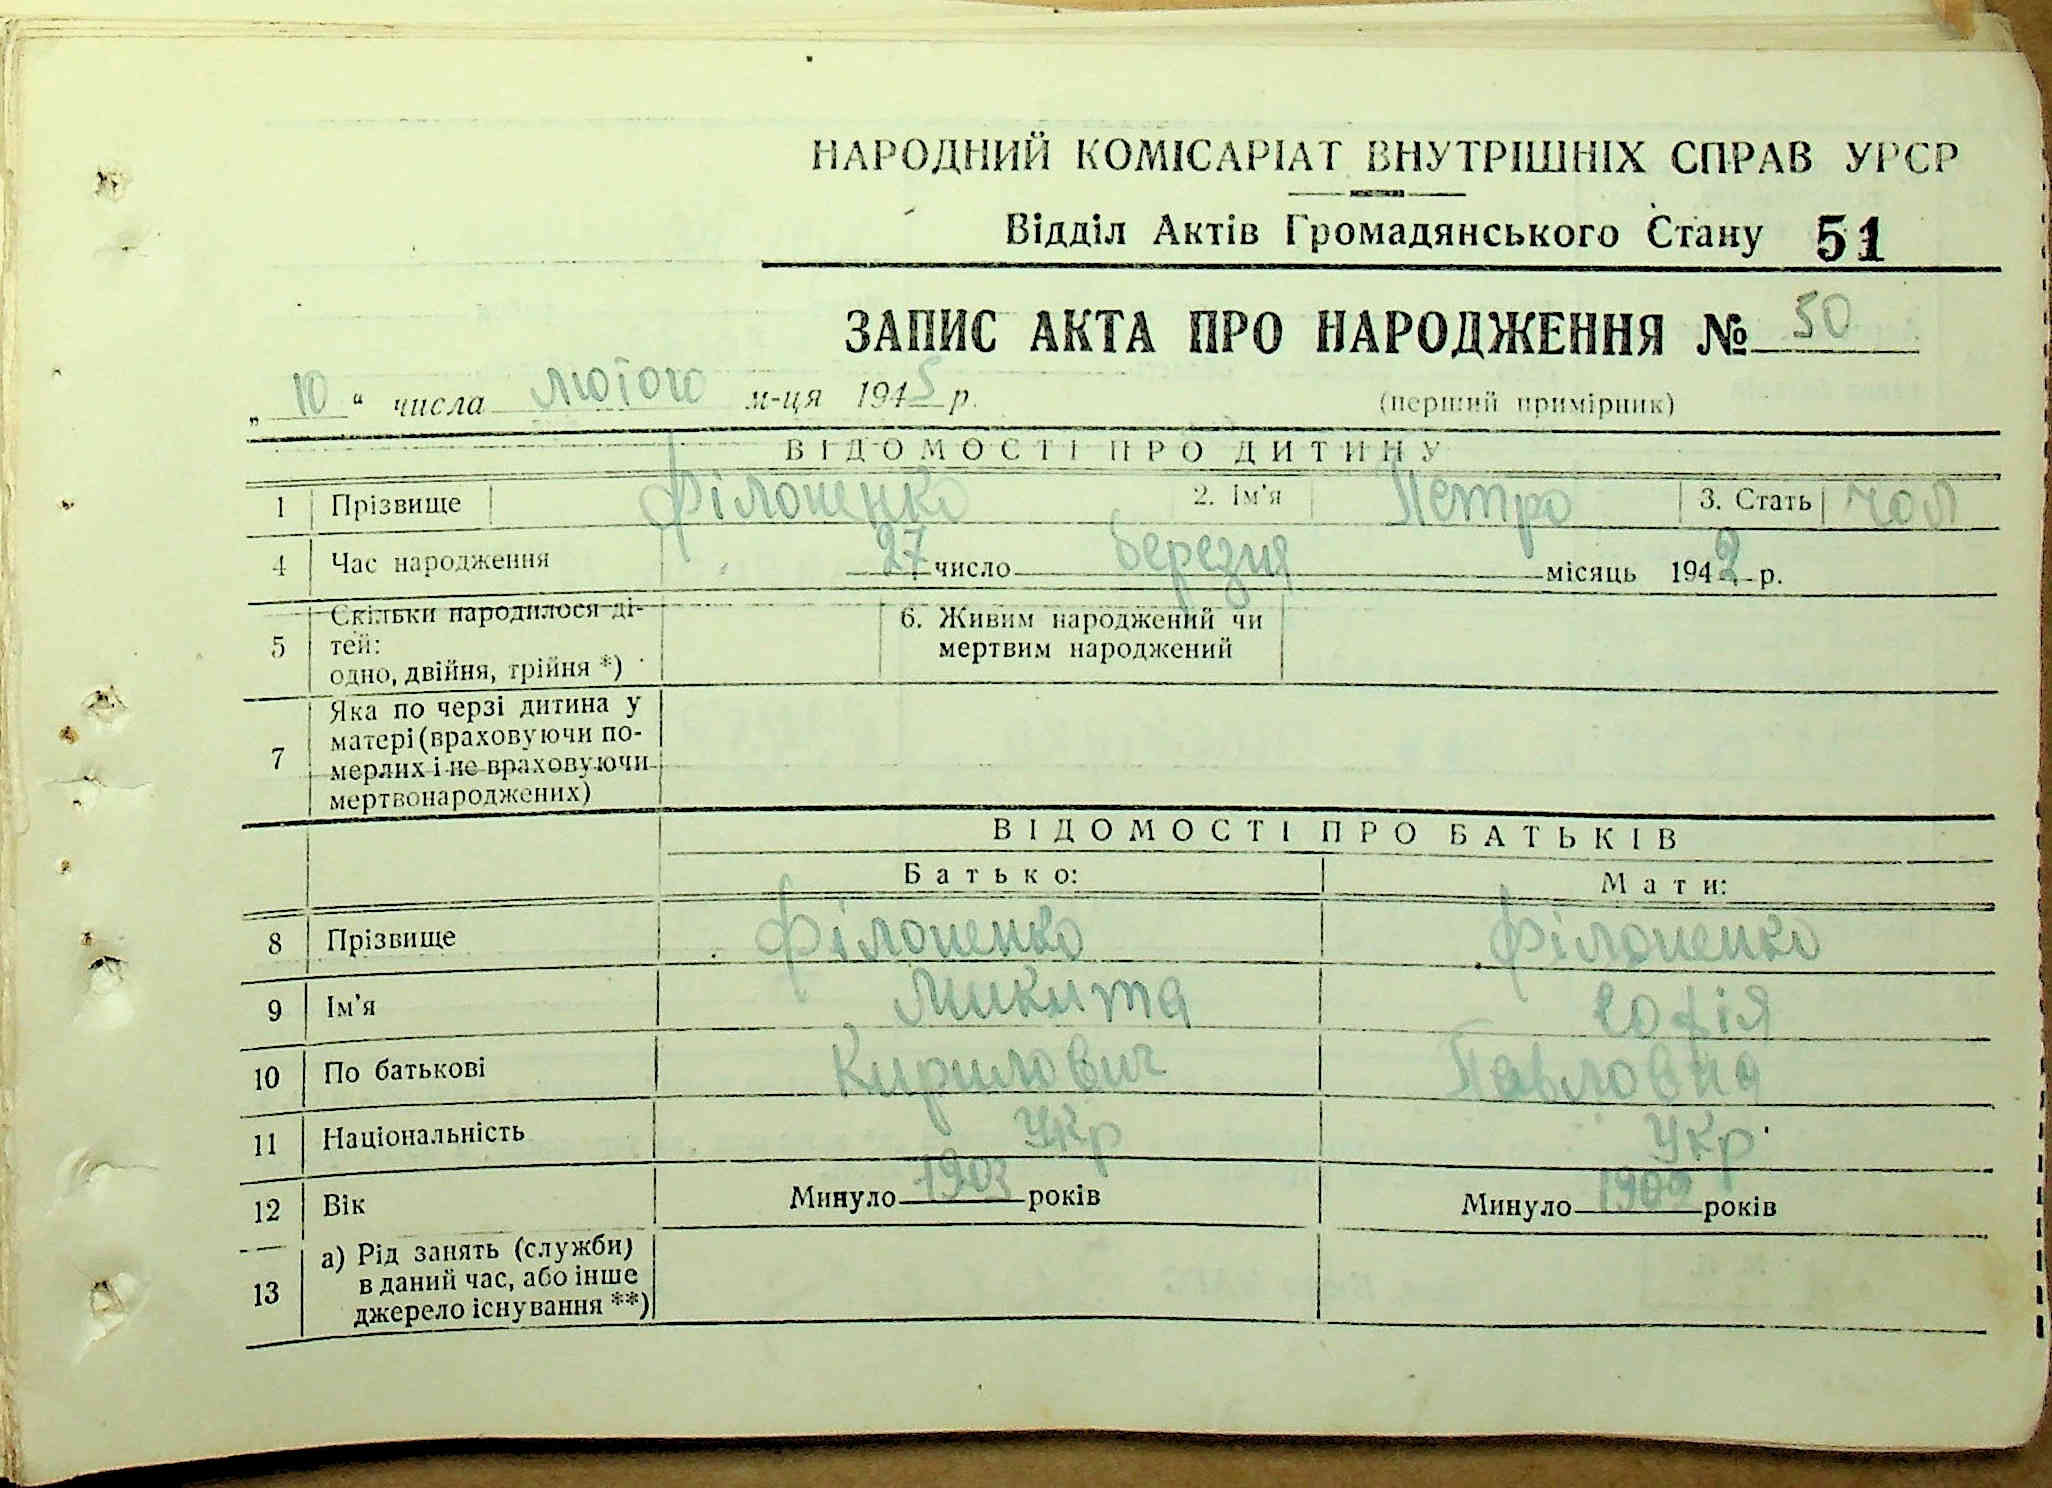 НАРОДНИЙ КОМІСАРІАТ ВНУТРІШНІХ СПРАВ УРСР
Відділ Актів Громадянського Стану 51
ЗАПИС АКТА ПРО НАРОДЖЕННЯ № 50
„ 10 “ числа лютого м-ця 1945 р.
(перший примірник)
ВІДОМОСТІ ПРО ДИТИНУ
1 Прізвище Філоненко 2. Ім'я Петро 3. Стать чол
4 Час народження 27 число березня місяць 1942 р.
5 Скільки народилося ді-
тей:
одно, двійня, трійня *)
6. Живим народжений чи
мертвим народжений
7 Яка по черзі дитина у
матері (враховуючи по-
мерлих і не враховуючи
мертвонароджених)
ВІДОМОСТІ ПРО БАТЬКІВ
Батько: Мати:
8 Прізвище Філоненко Філоненко
9 Ім'я Микита Софія
10 По батькові Кирилович Павловна
11 Національність Укр Укр.
12 Вік Минуло 1903 років Минуло 1909 років
13 а) Рід занять (служби)
в даний час, або інше
джерело існування **)